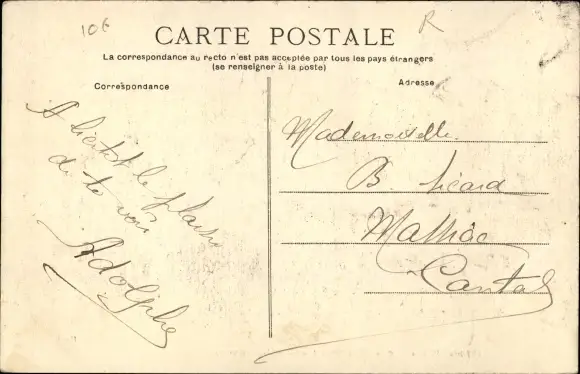 10€
R
CARTE POSTALE
La correspondance au recto n'est pas acceptée par tous les pays étrangers
(se renseigner à la poste)
Correspondance
Adresse
A bientot le plaisir
de te voir
Adolphe
Mademoiselle
B. Picard
Cantal